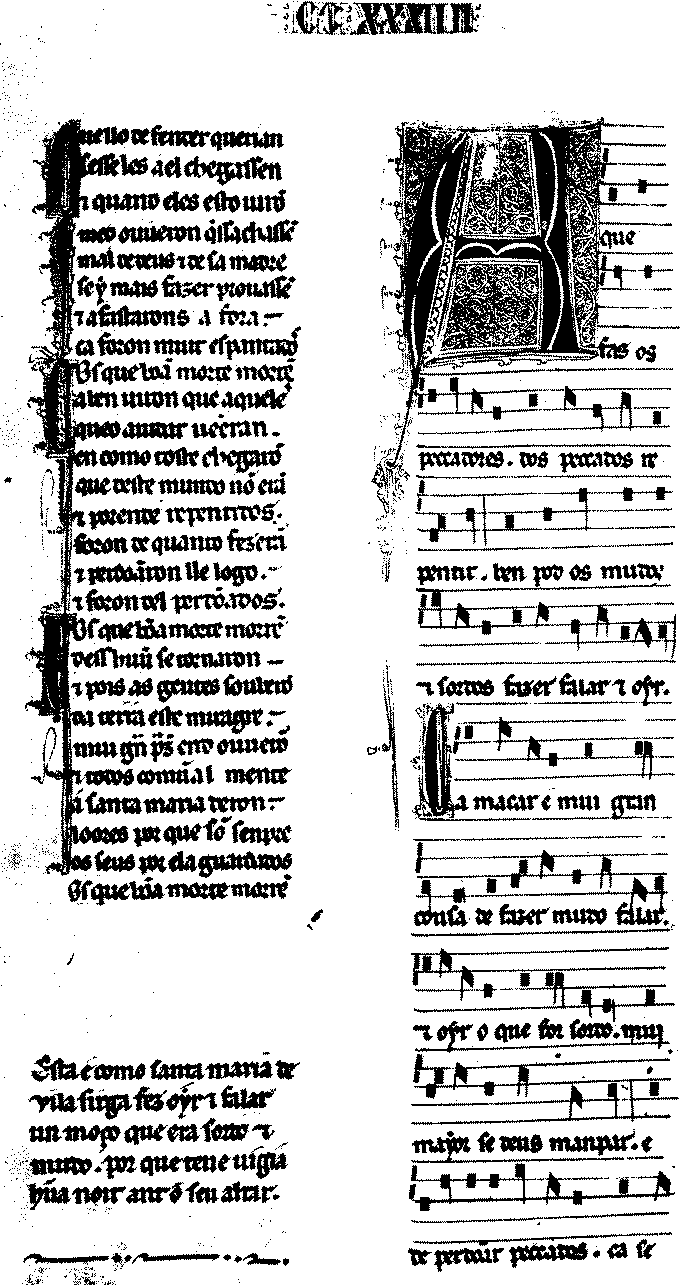 CCXXXIIII
quello defender querian
sesse los a el chegassen
⁊ quand eles esto uirõ
medo ouueron q̇ ssachassẽ
mal de deus ⁊ de sa madre
sey mais fazer prouassẽ
⁊ afastarons a fora.—
ca foron muit espantad̃
Os que bõa morte morrẽ
alen uiron que aquele
queo
en como toste chegarõ
que deste mundo nõ erã
⁊ porende repentidos.
foron de quanto fezerã
⁊ perdõaron lle logo.—
⁊ foron del perdõados.
Os que bõa morte morrẽ
dessũu se tornaron —
⁊ pois as gentes souberõ
da terra este miragre.—
mui gñ p̃s end ouuerõ
⁊ todos comũal mente
a santa maria deron.—
loores por que sõ senpre
os seus por ela guardados
Os que bõa morte morrẽ
Esta e como santa maria de
vila sirga fez oyr ⁊ falar
un moço que era sordo ⁊
mudo. por que teue uigia
hũa noit ant o seu altar.
A que
faz os
peccadores. dos peccados re
pentir. ben pod os mudos
⁊ sordos fazer falar ⁊ oyr.
Ca macar e mui gran
cousa de fazer mudo falar.
⁊ oyr o que for sordo. mui
mayor se deus manpar. e
de perdoar peccados. ca se